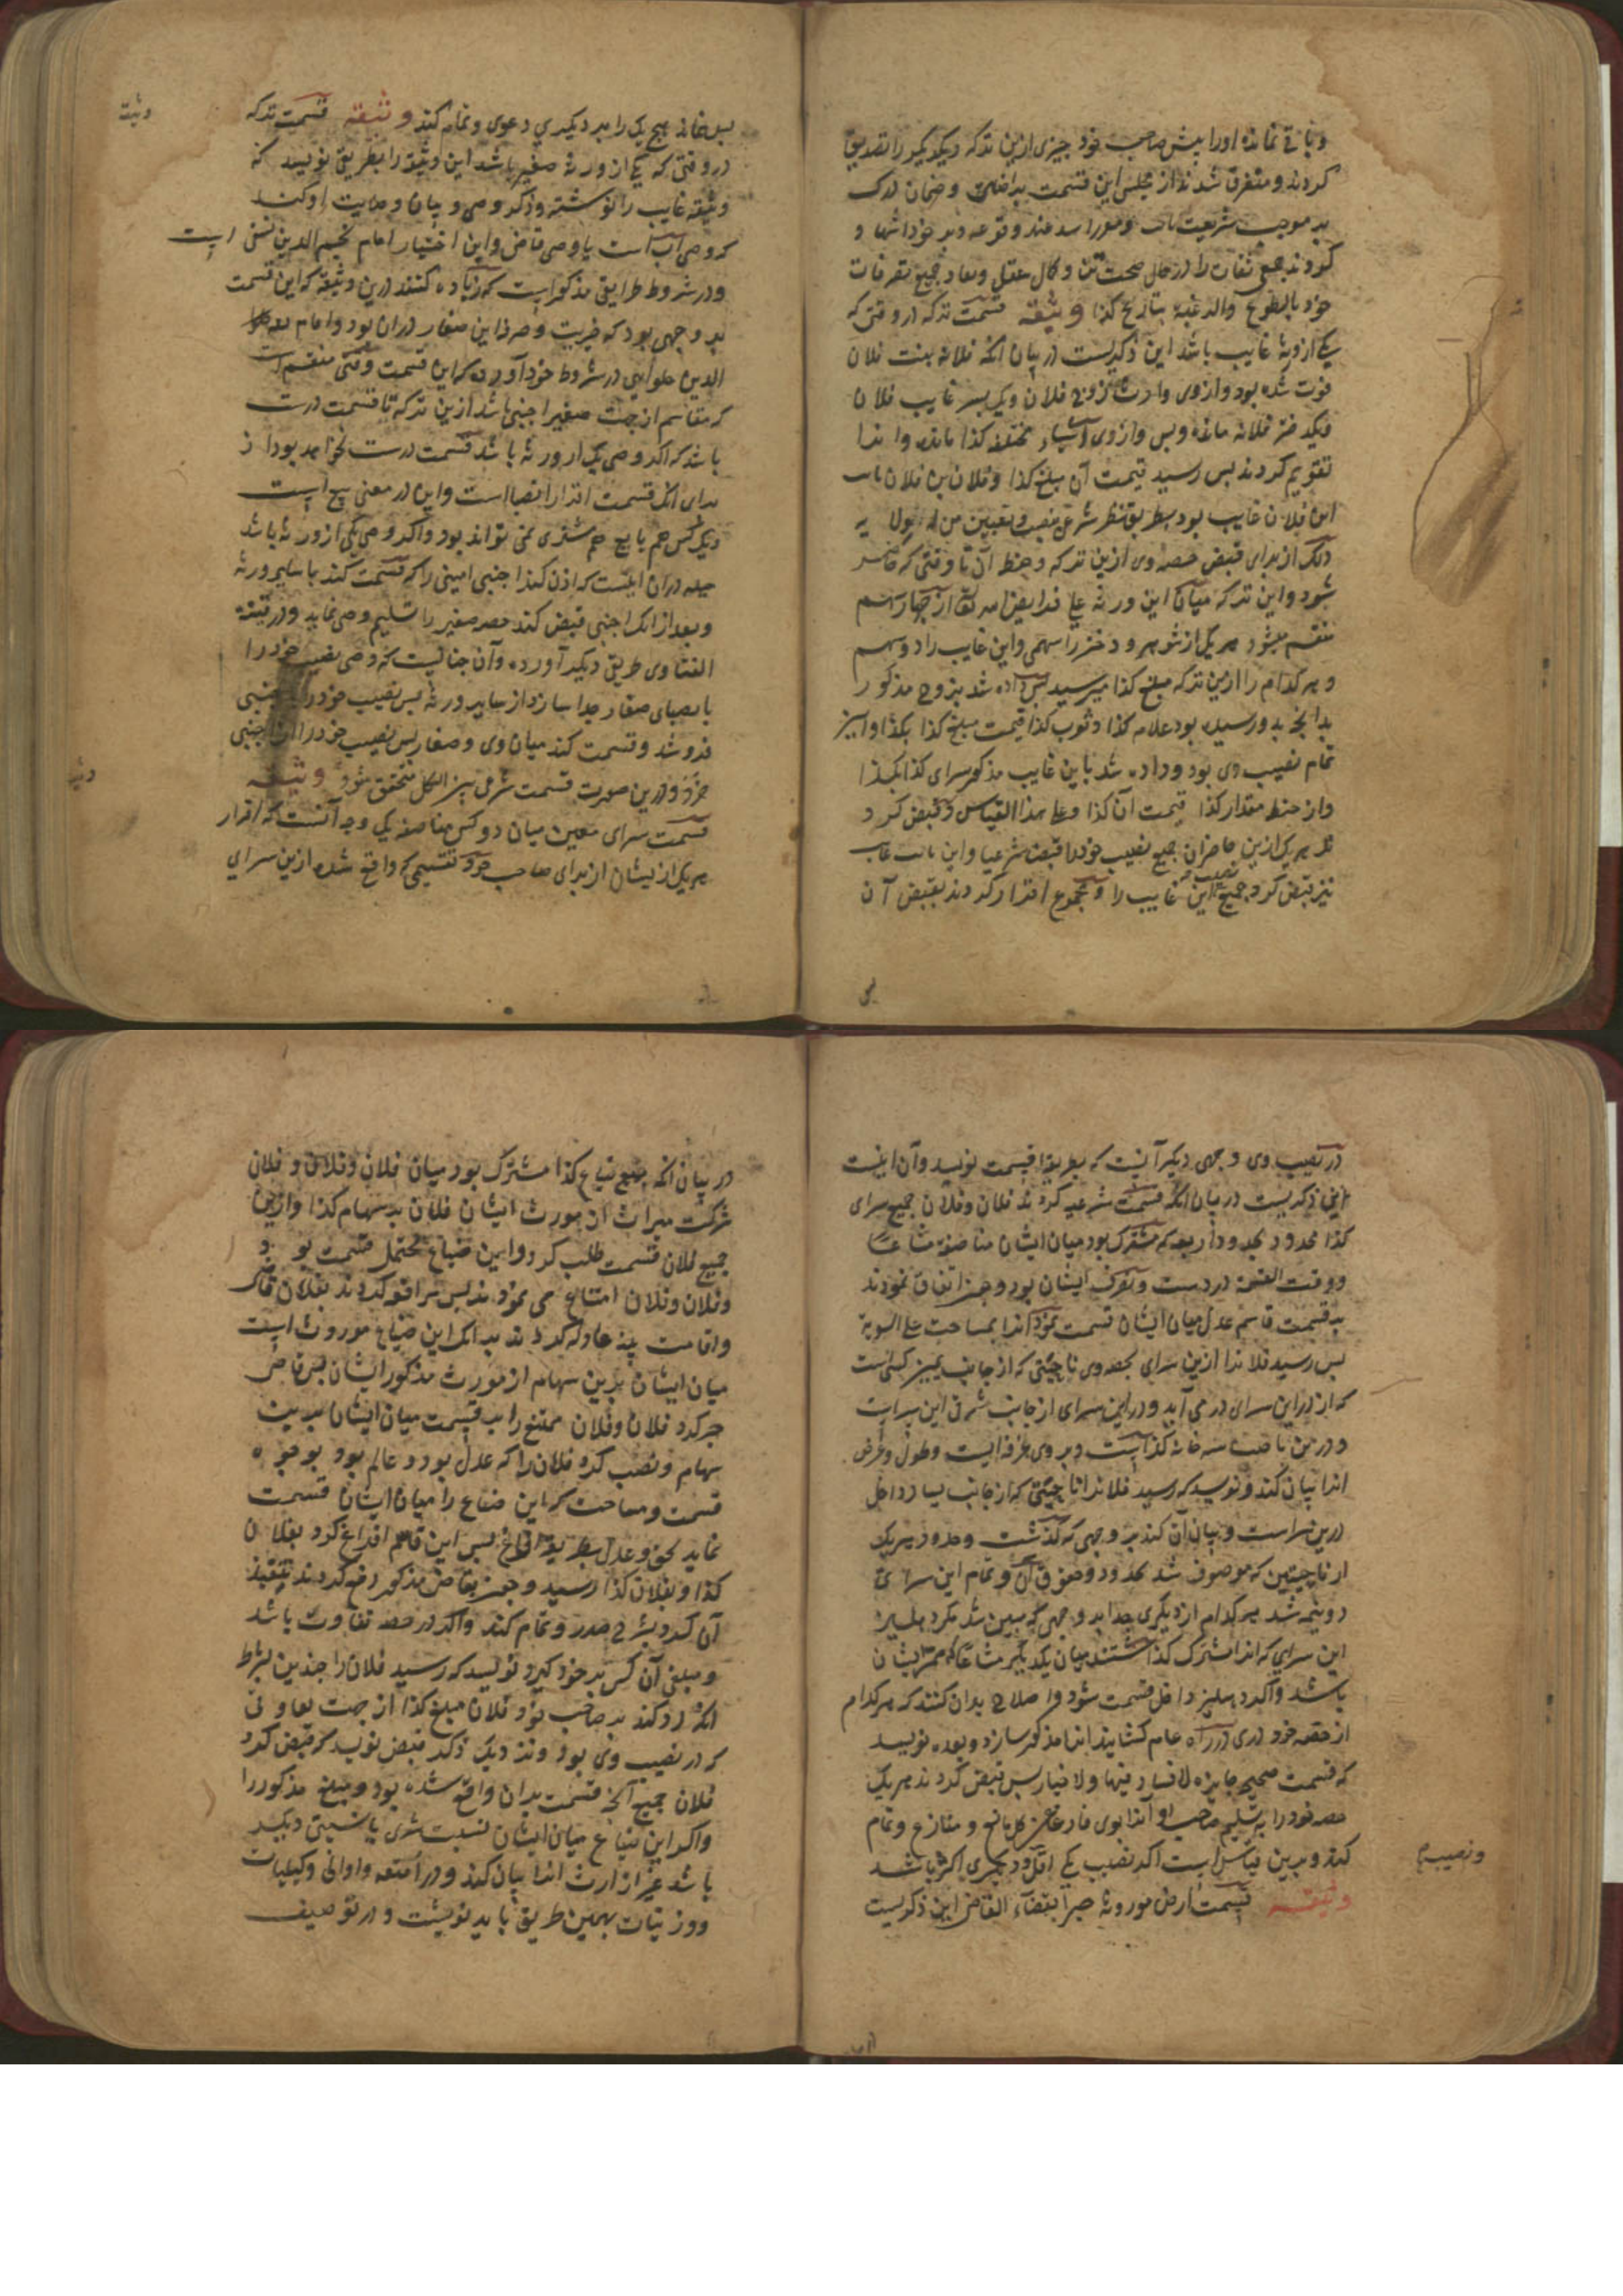 و باقی نمانده او را پیش صاحب خود چیزی ازین ترکه و یکدیگر را تصدیق
کردند و متفرق شدند از مجلس این قسمت بتراضی و ضمان درک
بر موجب شریعت و بر خود اشهاد
کردند جمعی ثقات را در حال صحت تن و کمال عقل و نفاد جمیع تصرفات
خود بالطوع والرغبة بتاریخ کذا وثیقه قسمت ترکه در وقتی که
یکی از ورثه غایب باشد این ذکریست در بیان انکه فلانه بنت فلان
فوت شده بود و از وی وارث زوج فلان و یک پسر غایب فلان
و یکدختر فلانه مانده و بس و از وی اشیاء مختلفه کذا مانده و انرا
تقویم کردند پس رسید قیمت آن بمبلغ کذا و فلان بن فلان نایب
این فلان غایب بود بطریق نظر شرعی بنصب و تعیین من له ولایة
ذلک از برای قبض حصه وی ازین ترکه و حفظ آن تا وقتی که حاضر
شود و این ترکه میان این ورثه علی فرایض الله تعالی از چهار سهم
منقسم میشود هر یکی از شوهر و دختر را سهمی و این غایب را دو سهم
و هر کدام را ازین ترکه مبلغ کذا میرسید پس داده شد بزوج مذکور
بدانچه بدو رسیده بود غلام کذا و ثوب کذا قیمت مبلغ کذا بکذا و این
تمام نصیب وی بود و داده شد باین غایب مذکور سرای کذا بکذا
و از حنطه مقدار کذا قیمت آن کذا و علی هذا القیاس و قبض کرد
هر یک ازین حاضران جمیع نصیب خود را قبض شرعیا و این نایب غایب
نیز قبض کرد جمیع نصیب این غایب را و مجموع اقرار کردند بقبض آن
پس
وثیقه
پس خانه هیچ یک را بر دیگری دعوی و تمام کند وثیقه قسمت ترکه
در وقتی که یکی از ورثه صغیر باشد این وثیقه را بطریق نویسد که
وثیقه غایب را نوشته و ذکر وصی و بیان وصایت او کند
که وصی اب است یا وصی قاضی و این اختیار امام نجم الدین نسفی است
و در شروط طرایقی مذکور است که زیاده کنند درین وثیقه که این قسمت
بر وجهی بود که خیریت و صرفه این صغار دران بود و امام
الدین حلوایی در شروط خود آورده که این قسمت وقتی منقسم است
که مقاسم از جهت صغیر اجنبی باشد ازین ترکه تا قسمت درست
باشد که اگر وصی یکی از ورثه باشد قسمت درست نخواهد بود از
برای انکه قسمت افراز انصبا است و این در معنی بیع است
و یک کس هم بایع هم مشتری نمی تواند بود و اگر وصی یکی از ورثه باشد
حیله دران اینست که اذن کند اجنبی امینی را که قسمت کند با سایر ورثه
و بعد از انکه اجنبی قبض کند حصه صغیر را تسلیم وصی نماید و در قنیه
الفتاوی طریق دیگر آورده و آن چنانیست که وصی نصیب خود را
با نصبای صغار جدا سازد از سایر ورثه پس نصیب خود را با اجنبی
فروشد و قسمت کند میان وی و صغار پس نصیب خود را ازان اجنبی
خرد و درین صورت قسمت شرعی بین الکل متحقق شود وثیقه
قسمت سرای معین میان دو کس مناصفه یک وجه آنست که اقرار
هر یک ازیشان از برای صاحب خود تقسیمی که واقع شده ازین سرای
در نصیب وی وجهی دیگر آنست که بطریق قسمت نویسد و آن اینست
این ذکریست در بیان انکه قسمت شرعیه کردند فلان و فلان جمیع سرای
کذا محدود بحدود اربعه که مشترک بود میان ایشان مناصفه مشاعا
و وقت القسمة در دست و تصرف ایشان بود و جز اتفاق نمودند
بر قسمت قاسم عدل میان ایشان قسمت نمود انرا بمساحت علی السویة
پس رسید فلانرا ازین سرای بحصه وی ناحیتی که از جانب یمین کسی است
که از در این سرای در می آید و در این سرای از جانب شرقی این سرایست
و درین ناحیت سه خانه کذا است و بر وی غرفه ایست و طول و عرض
انرا بیان کند و نویسد که رسید فلانرا ناحیتی که از جانب یسار داخل
درین سراست و بیان آن کند بر وجهی که گذشت و حدود هر یک
از ناحیتین که موصوف شد بحدود و حقوق آن و تمام این سرای
دو نیمه شد هر کدام از دیگری جدا بر وجهی که مبین شد مگر دهلیز
این سرای که انرا مشترک گذاشتند میان یکدیگر مشاعا که ممر ایشان
باشد و اگر دهلیز داخل قسمت شود و اصلاح بدان کنند که هر کدام
از حصه خود دری در راه عام گشایند انرا مذکور سازد و بعده نویسد
که قسمت صحیحه جایزه لا فساد فیها و لا خیار پس قبض کردند هر یک
حصه خود را بتسلیم صاحب او آنرا بوی فارغا عن کل مانع و منازع و تمام
کند و برین قیاس است اگر نصیب یکی اقل و دیگری اکثر باشد
وثیقه قسمت ارض موروثه جبرا بقضاء القاضی این ذکریست
در بیان انکه جمیع ضیاع کذا مشترک بود میان فلان و فلان و فلان
شرکت میراث از مورث ایشان فلان بر سهام کذا و ازین
جمیع فلان قسمت طلب کرد و این ضیاع محتمل قسمت بود
و فلان و فلان امتناع می نمودند پس مرافعه کردند بفلان قاضی
و اقامت بینه عادله کردند بر انکه این ضیاع موروث است
میان ایشان برین سهام از مورث مذکور ایشان پس قاضی
جبر کرد فلان و فلان ممتنع را بر قسمت میان ایشان برین
سهام و نصب کرد فلان را که عدل بود و عالم بود بوجوه
قسمت و مساحت که این ضیاع را میان ایشان قسمت
نماید بحق و عدل بطریق اقراع پس این قاسم اقراع کرد بفلان
کذا و بفلان کذا رسید و بقاضی مذکور رفع کردند تنفیذ
آن کرد بشرح صدر و تمام کند و اگر در حصه تفاوت باشد
و مبلغی آن کس بر خود گیرد نویسد که رسید فلان را چندین بشرط
انکه رد کند بر صاحب خود فلان مبلغ کذا از جهت تفاوتی
که در نصیب وی بود و نزدیک ذکر قبض نویسد که قبض کرد
فلان جمیع آنچه قسمت بدان واقع شده بود و مبلغ مذکور را
و اگر این ضیاع میان ایشان نسبت شری یا نسبتی دیگر
باشد غیر از ارث انرا بیان کند و در امتعه و اوانی و کیلیات
و وزنیات بهمین طریق باید نوشت و در توصیف